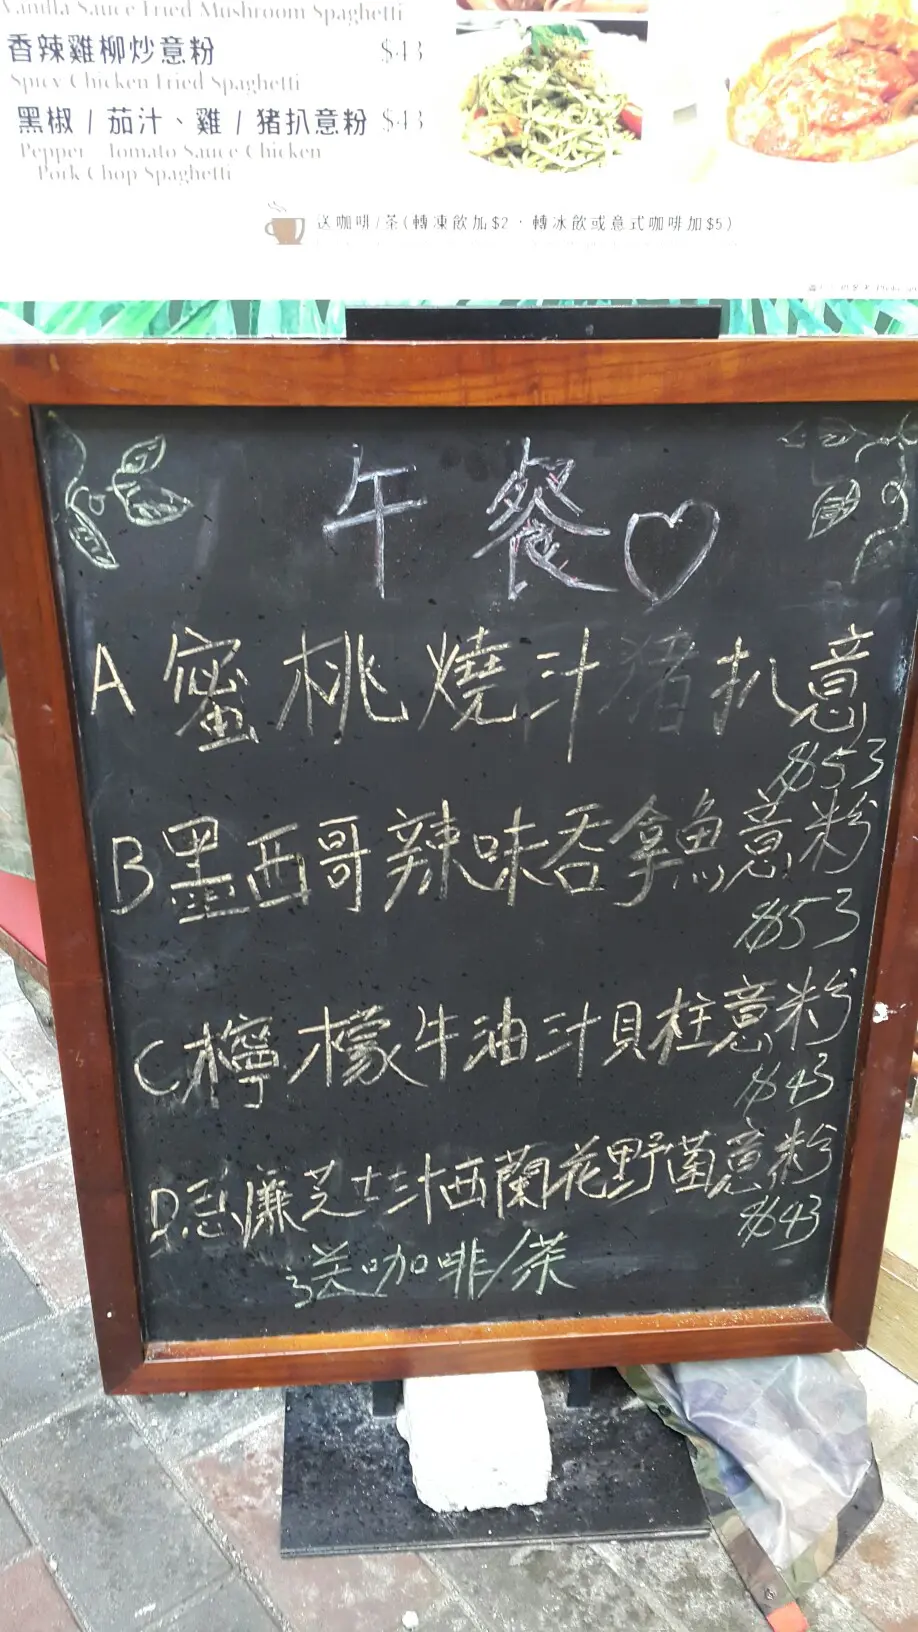 Vanilla Sauce Fried Mushroom Spaghetti
香辣雞柳炒意粉 $43
Spicy Chicken Fried Spaghetti
黑椒 / 茄汁、雞 / 豬扒意粉 $43
Pepper Tomato Sauce Chicken
Pork Chop Spaghetti
送咖啡/茶(轉凍飲加$2，轉冰飲或意式咖啡加$5)
午餐♡
A 蜜桃燒汁豬扒意
$53
B墨西哥辣味吞拿魚意粉
$53
C檸檬牛油汁貝柱意粉
$43
D忌廉芝士汁西蘭花野菌意粉
$43
送咖啡/茶